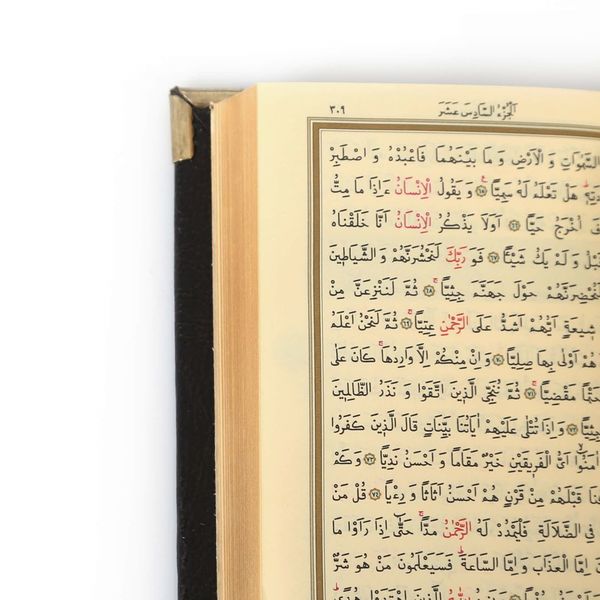 اَلْجُزْءُ السَّادِسَ عَشَرَ
٣٠٩
السَّمٰوَاتِ وَ الْاَرْضِ وَ مَا بَيْنَهُمَا فَاعْبُدْهُ وَ اصْطَبِرْ
هَلْ تَعْلَمُ لَهُ سَمِيًّا ﴿٦٥﴾ وَ يَقُولُ الْاِنْسَانُ ءَاِذَا مَا مِتُّ
اُخْرَجُ حَيًّا ﴿٦٦﴾ اَوَلَا يَذْكُرُ الْاِنْسَانُ اَنَّا خَلَقْنَاهُ
قَبْلُ وَ لَمْ يَكُ شَيْـًٔا ﴿٦٧﴾ فَوَ رَبِّكَ لَنَحْشُرَنَّهُمْ وَ الشَّيَاطِينَ
لَنُحْضِرَنَّهُمْ حَوْلَ جَهَنَّمَ جِثِيًّا ﴿٦٨﴾ ثُمَّ لَنَنْزِعَنَّ مِنْ
شِيعَةٍ اَيُّهُمْ اَشَدُّ عَلَى الرَّحْمٰنِ عِتِيًّا ﴿٦٩﴾ ثُمَّ لَنَحْنُ اَعْلَمُ
هُمْ اَوْلٰى بِهَا صِلِيًّا ﴿٧٠﴾ وَ اِنْ مِنْكُمْ اِلَّا وَارِدُهَا كَانَ عَلٰى
حَتْمًا مَقْضِيًّا ﴿٧١﴾ ثُمَّ نُنَجِّي الَّذِينَ اتَّقَوْا وَ نَذَرُ الظَّالِمِينَ
جِثِيًّا ﴿٧٢﴾ وَ اِذَا تُتْلٰى عَلَيْهِمْ اٰيَاتُنَا بَيِّنَاتٍ قَالَ الَّذِينَ كَفَرُوا
اٰمَنُوا اَيُّ الْفَرِيقَيْنِ خَيْرٌ مَقَامًا وَ اَحْسَنُ نَدِيًّا ﴿٧٣﴾ وَ كَمْ
قَبْلَهُمْ مِنْ قَرْنٍ هُمْ اَحْسَنُ اَثَاثًا وَ رِءْيًا ﴿٧٤﴾ قُلْ مَنْ
فِي الضَّلَالَةِ فَلْيَمْدُدْ لَهُ الرَّحْمٰنُ مَدًّا حَتّٰى اِذَا رَاَوْا مَا
اِمَّا الْعَذَابَ وَ اِمَّا السَّاعَةَ فَسَيَعْلَمُونَ مَنْ هُوَ شَرٌّ